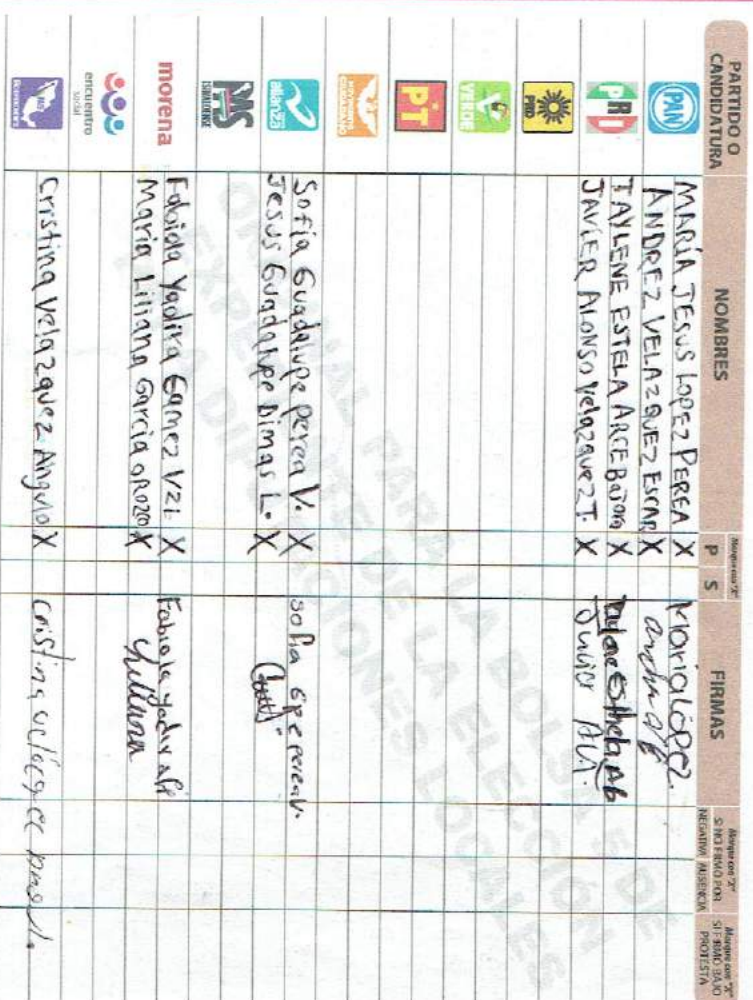 PARTIDO O CANDIDATURA
NOMBRES
Marque con "X"
P S
FIRMAS
Marque con "X" SI NO FIRMÓ POR
NEGATIVA AUSENCIA
Marque con "X" SI FIRMÓ BAJO PROTESTA
PAN
MARÍA JESUS LOPEZ PEREA X María López
ANDREZ VELAZQUEZ ESCAR X
PRI
TAYLENE ESTELA ARCE BAJORQ X
JAVIER ALONSO Velazquez T. X
PRD
VERDE
PT
MOVIMIENTO CIUDADANO
alianza
Sofía Guadalupe perea V. X sofia Gpe perea v.
Jesus Guadalupe Dimas L. X
PAS
SINALOENSE
morena
Fabiola Yadira Gamez Vzl. X Fabiola yadira
Maria Liliana Garcia orozco X Liliana
encuentro social
Cristina Velazquez Angulo X Cristina
ORIGINAL PARA LA BOLSA DE
EXPEDIENTE DE LA ELECCIÓN
PARA DIPUTACIONES LOCALES